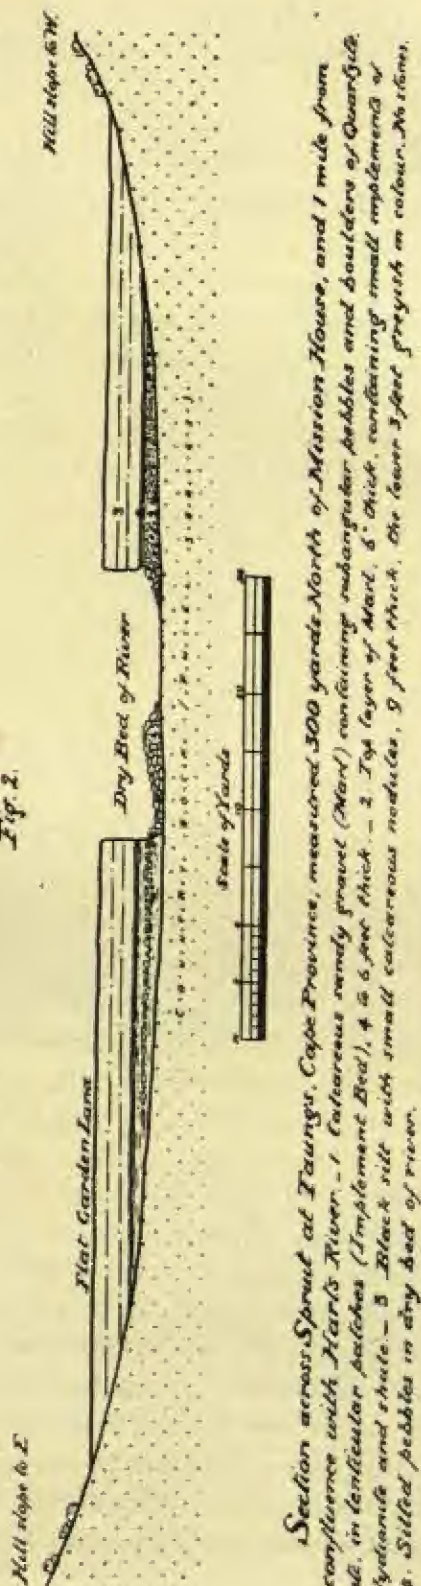 Fig. 2.
Hill slope to E
Flat Garden Land
Dry Bed of River
Hill slope to W.
3
COUNTRY ROCK
Scale of Yards
Section across Spruit at Taungs, Cape Province, measured 300 yards North of Mission House, and 1 mile from
confluence with Harts River. - 1 Calcareous sandy gravel (Marl) containing subangular pebbles and boulders of Quartzite
in lenticular patches (Implement Bed), 4 to 6 feet thick. - 2 Top layer of Marl, 6" thick, containing small implements of
Lydianite and shale - 3 Black silt with small calcareous nodules, 9 feet thick, the lower 3 feet greyish in colour. No stones.
Silted pebbles in dry bed of river.